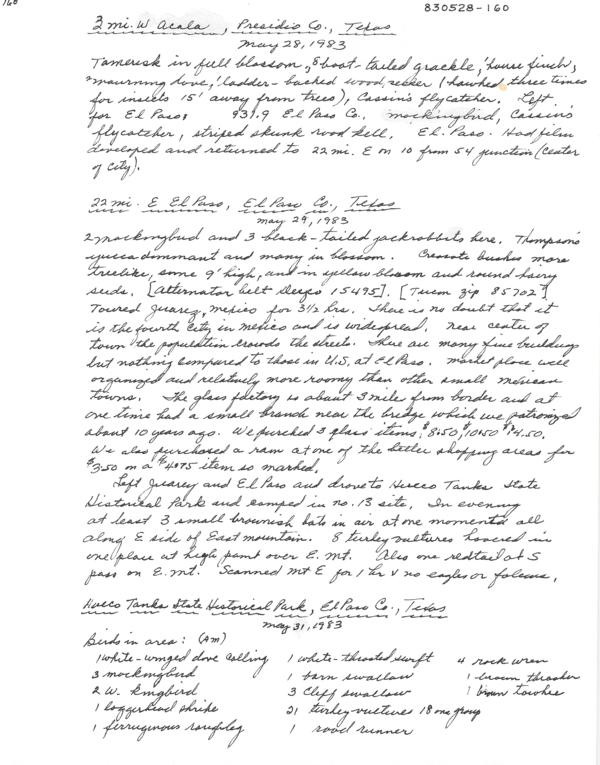 160
830528-160
3 mi. W Acala, Presidio Co., Texas
May 28, 1983
Tamerisk in full blossom, 8 boat-tailed grackle, 1 house finch,
2 mourning dove, 1 ladder-backed woodpecker (hawked three times
for insects 15' away from trees), Cassin's flycatcher. Left
for El Paso: 931.9 El Paso Co. mockingbird, Cassin's
flycatcher, striped skunk road kill. El Paso. Had film
developed and returned to 22 mi. E on 10 from 54 junction (center
of city).
22 mi. E El Paso, El Paso Co., Texas
May 29, 1983
2 mockingbird and 3 black-tailed jackrabbits here. Thompson's
yucca dominant and many in blossom. Creosote bushes more
treelike, some 9' high, and in yellow bloom and round hairy
seeds. [Alternator belt Deepco 15495]. [Tucson zip 85702]
Toured Juarez, Mexico for 3 1/2 hrs. There is no doubt that it
is the fourth city in Mexico and is widespread. Near center of
town the population crowds the streets. There are many fine buildings
but nothing compared to those in U.S. at El Paso. Market place well
organized and relatively more roomy than other small Mexican
towns. The glass factory is about 3 mile from border and at
one time had a small branch near the bridge which we patronized
about 10 years ago. We purched 3 glass items, $8.50, $10.50 $4.50.
We also purchased a ram at one of the better shopping areas for
$3.50 on a $4.75 item so marked.
Left Juarez and El Paso and drove to Hueco Tanks State
Historical Park and camped in no. 13 site. In evening
at least 3 small brownish bats in air at one moment all
along E side of East mountain. 8 turkey vultures hovered in
one place at high point over E. Mt. Also one redtail at S
pass on E. Mt. Scanned Mt E for 1 hr & no eagles or falcons.
Hueco Tanks State Historical Park, El Paso Co., Texas
May 31, 1983
Birds in area: (AM)
1 white-winged dove calling 1 white-throated swift 4 rock wren
3 mockingbird 1 barn swallow 1 brown thrasher
2 W. kingbird 3 Cliff swallow 1 brown towhee
1 loggerhead shrike 21 turkey-vultures 18 one group
1 ferruginous roughleg 1 road runner